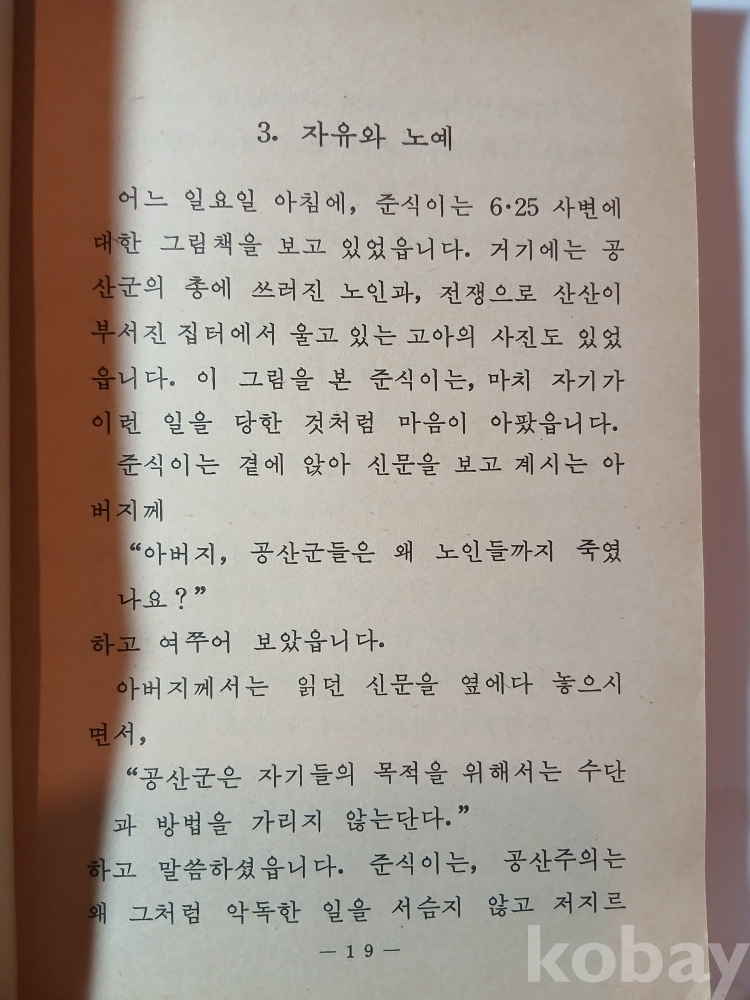 3. 자유와 노예
어느 일요일 아침에, 준식이는 6·25 사변에
대한 그림책을 보고 있었읍니다. 거기에는 공
산군의 총에 쓰러진 노인과, 전쟁으로 산산이
부서진 집터에서 울고 있는 고아의 사진도 있었
읍니다. 이 그림을 본 준식이는, 마치 자기가
이런 일을 당한 것처럼 마음이 아팠읍니다.
준식이는 곁에 앉아 신문을 보고 계시는 아
버지께
“아버지, 공산군들은 왜 노인들까지 죽였
나요?”
하고 여쭈어 보았읍니다.
아버지께서는 읽던 신문을 옆에다 놓으시
면서,
“공산군은 자기들의 목적을 위해서는 수단
과 방법을 가리지 않는단다.”
하고 말씀하셨읍니다. 준식이는, 공산주의는
왜 그처럼 악독한 일을 서슴지 않고 저지르
— 19 —
kobay